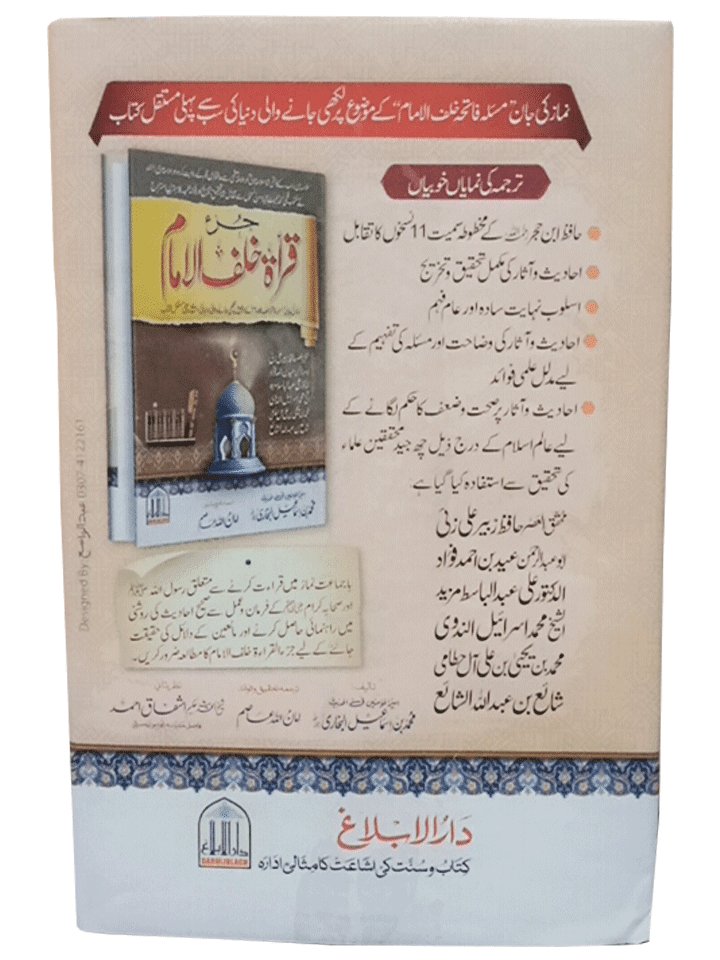 نماز کی جان "مسئلہ فاتحہ خلف الامام" کے موضوع پر لکھی جانے والی دنیا کی سب سے پہلی مستقل کتاب
ترجمہ کی نمایاں خوبیاں
حافظ ابن حجر رحمہ اللہ کے مخطوطہ سمیت 11 نسخوں کا تقابل
احادیث و آثار کی مکمل تحقیق و تخریج
اسلوب نہایت سادہ اور عام فہم
احادیث و آثار کی وضاحت اور مسئلہ کی تفہیم کے
لیے مدلل علمی فوائد
احادیث و آثار پر صحت و ضعف کا حکم لگانے کے
لیے عالم اسلام کے درج ذیل چھ جید محققین علماء
کی تحقیق سے استفادہ کیا گیا ہے:
محقق العصر حافظ زبیر علی زئی
ابو عبدالرحمن عبید بن احمد فواد
الدکتور علی عبدالباسط مزید
الشیخ محمد اسرائیل الندوی
محمد بن یحیی بن علی آل حطامی
شائع بن عبد اللہ الشائع
جزء
قراۃ خلف الامام
محمد بن اسماعیل البخاری
امان اللہ عاصم
باجماعت نماز میں قراءت کرنے سے متعلق رسول اللہ ﷺ
اور صحابہ کرام کے فرمان و عمل سے صحیح احادیث کی روشنی
میں راہنمائی حاصل کرنے اور مانعین کے دلائل کی حقیقت
جاننے کے لیے جزء القراءۃ خلف الامام کا مطالعہ ضرور کریں۔
تالیف:
محمد بن اسماعیل البخاری
ترجمہ تحقیق و فوائد
امان اللہ عاصم
نظر ثانی
اشفاق احمد
Designed By: عبدالواسع 0307-4122161
دار الابلاغ
DARULIBLAGH
دار الابلاغ
کتاب و سنت کی اشاعت کا مثالی ادارہ